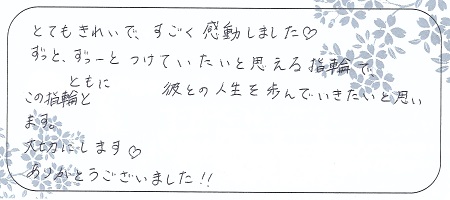 とてもきれいで、すごく感動しました♡
ずっと、ずーっとつけていたいと思える指輪で、
この指輪とともに彼との人生を歩んでいきたいと思い
ます。
大切にします♡
ありがとうございました!!